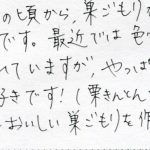 の頃から,巣ごもりを
です。最近では色
していますが,やっぱ
好きです!(栗きんとん
おいしい巣ごもりを作